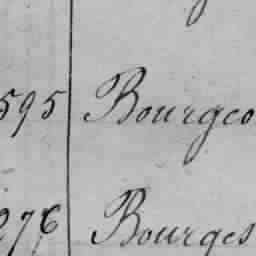 595 Bourgeo
276 Bourges